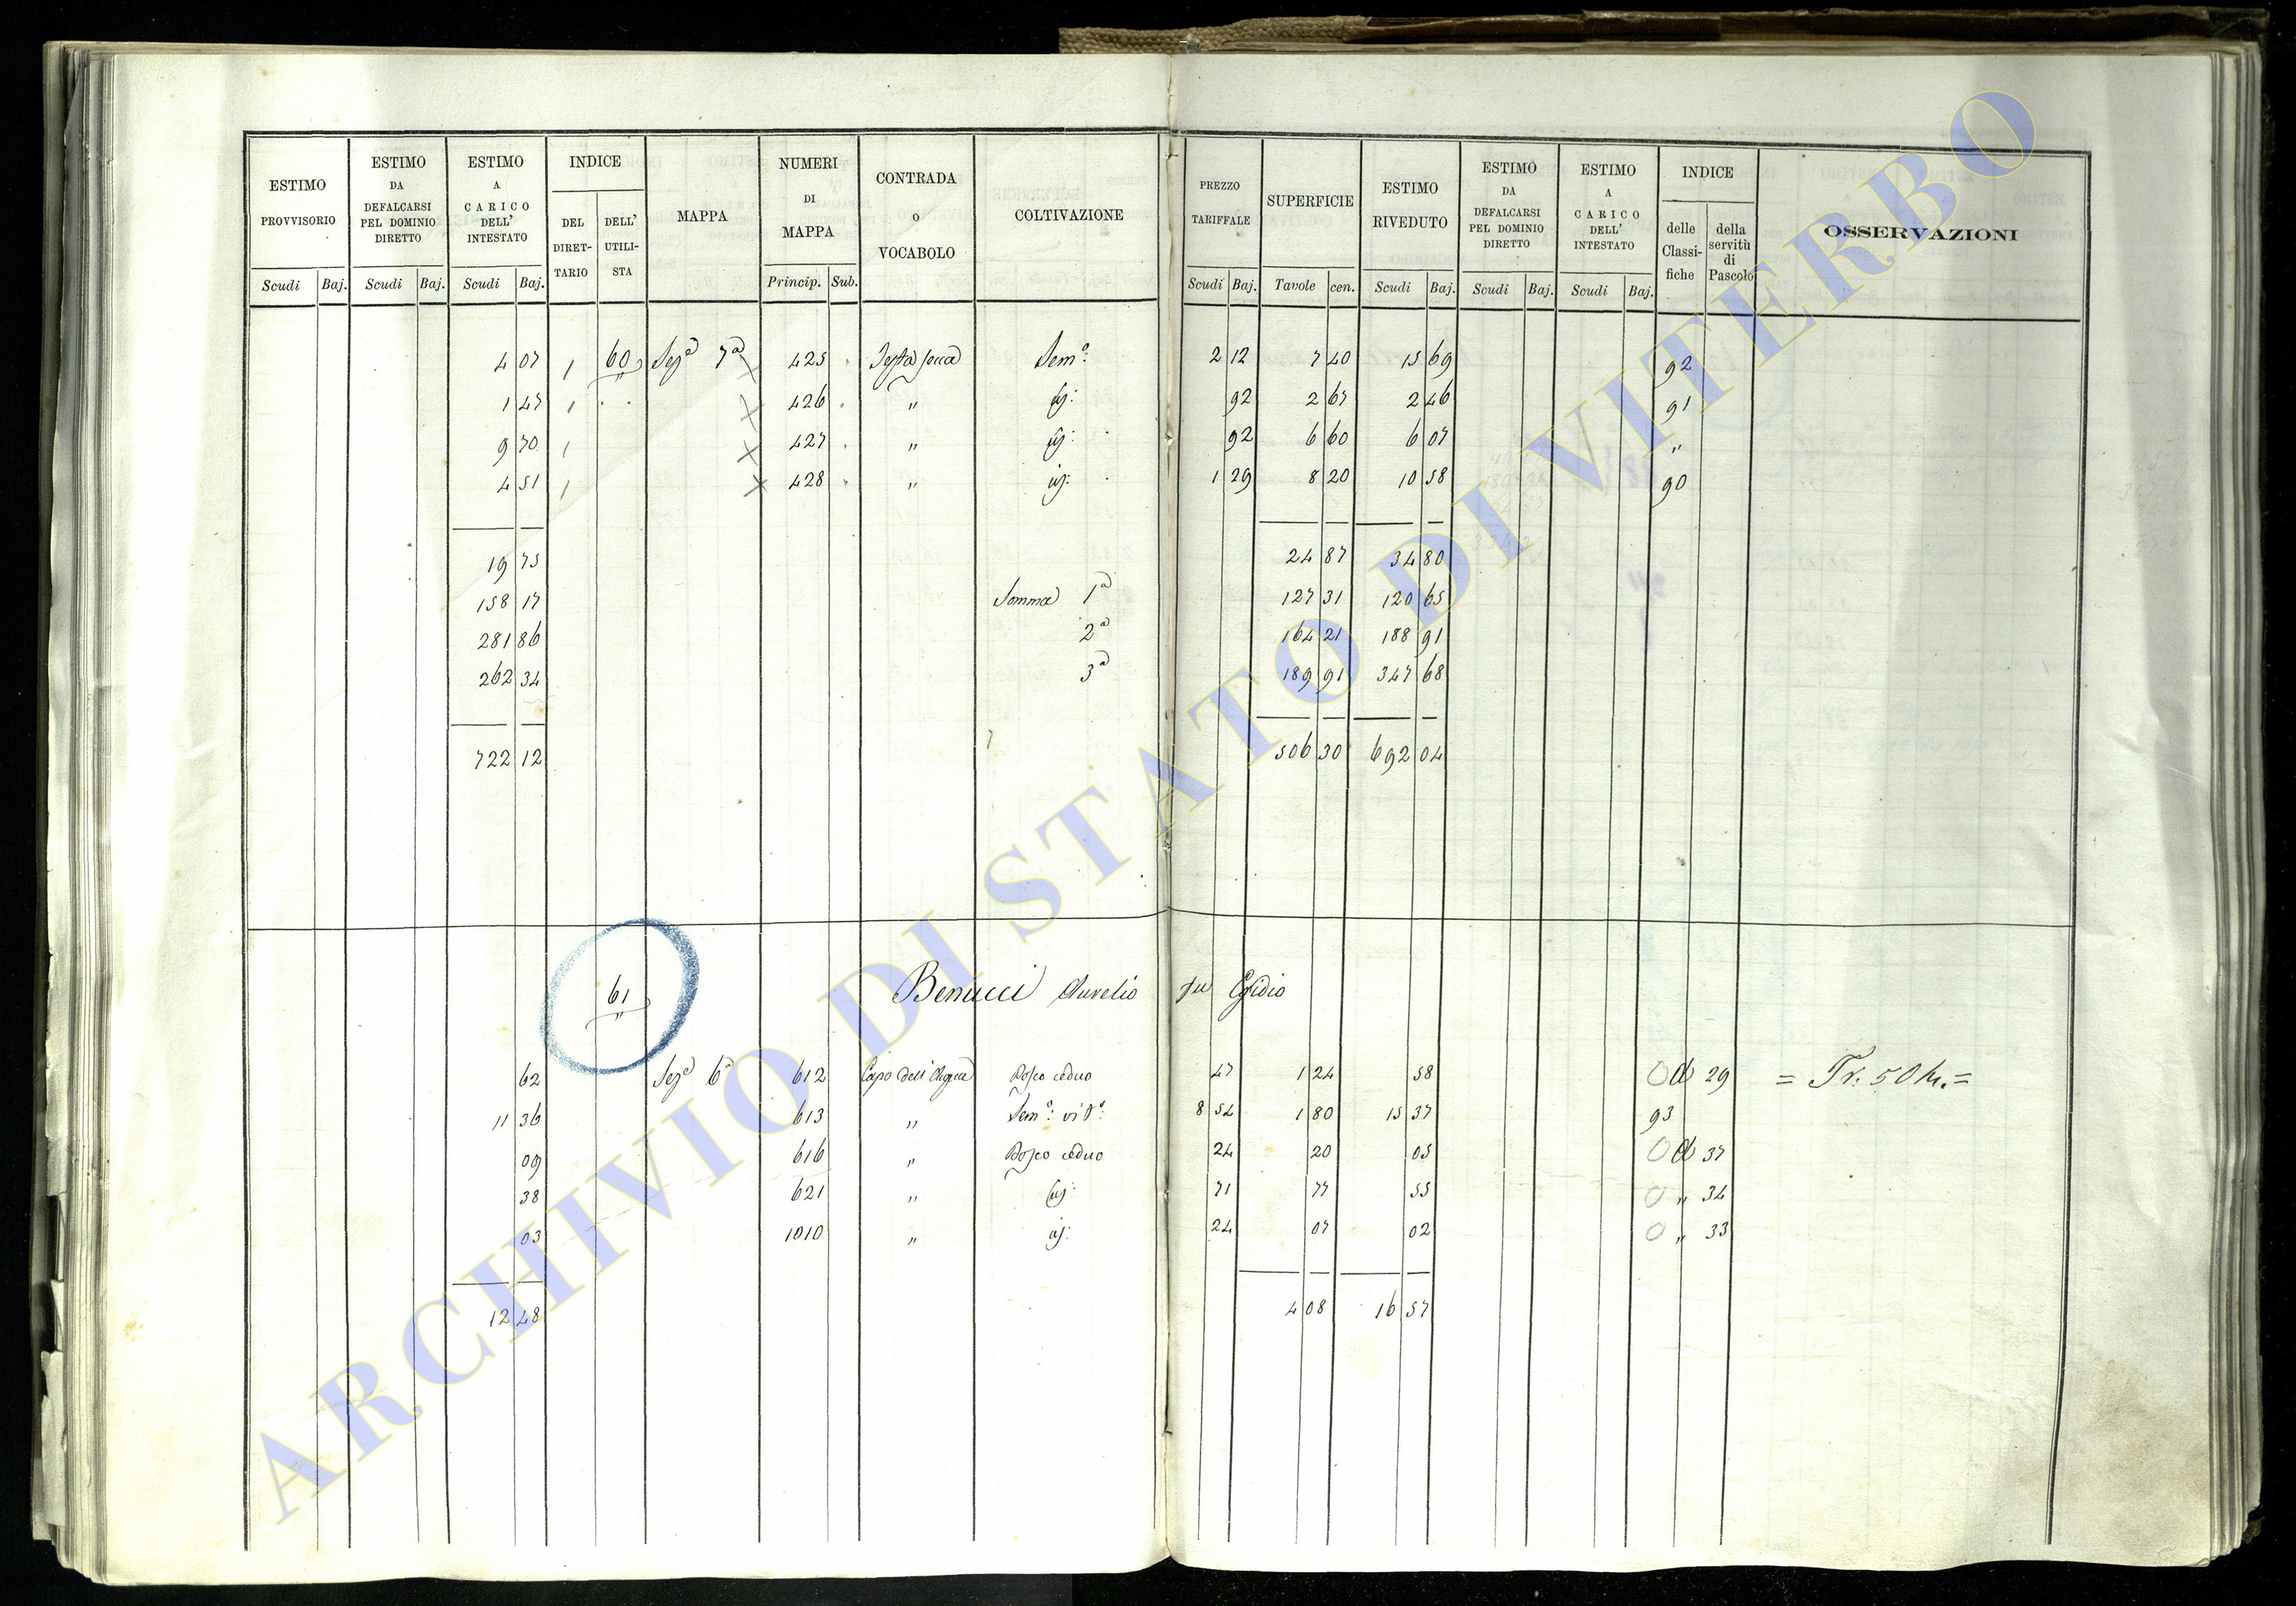 ESTIMO PROVVISORIO Scudi Baj.
ESTIMO DA DEFALCARSI PEL DOMINIO DIRETTO Scudi Baj.
ESTIMO A CARICO DELL' INTESTATO Scudi Baj.
INDICE DEL DIRET-TARIO DELL' UTILI-STA
MAPPA
NUMERI DI MAPPA Princip. Sub.
CONTRADA O VOCABOLO
COLTIVAZIONE
PREZZO TARIFFALE Scudi Baj.
SUPERFICIE Tavole cen.
ESTIMO RIVEDUTO Scudi Baj.
ESTIMO DA DEFALCARSI PEL DOMINIO DIRETTO Scudi Baj.
ESTIMO A CARICO DELL' INTESTATO Scudi Baj.
INDICE delle Classi-fiche della servitù di Pascolo
OSSERVAZIONI
4 07 1 60 Sezª 7ª 425 Testa secca Semº: 2 12 7 40 15 69 92
1 47 1 426 " id: 92 2 67 2 46 91
9 70 1 427 " id: 92 6 60 6 07 "
4 51 1 428 " id: 1 29 8 20 10 58 90
19 75 24 87 34 80
158 17 Somma 1ª 127 31 120 65
281 86 2ª 164 21 188 91
262 34 3ª 189 91 347 68
722 12 506 30 692 04
61 Benucci Aurelio fu Egidio
62 Sezª 6ª 612 Capo dell' Acqua Bosco ceduo 47 1 24 58 0 d 29 = Tr. 50 =
11 36 613 " Semº: vitº: 8 54 1 80 15 37 93
09 616 " Bosco ceduo 24 20 05 0 d 37
38 621 " id: 71 77 55 0 " 34
03 1010 " id: 24 07 02 0 " 33
12 48 4 08 16 57
ARCHIVIO DI STATO DI VITERBO